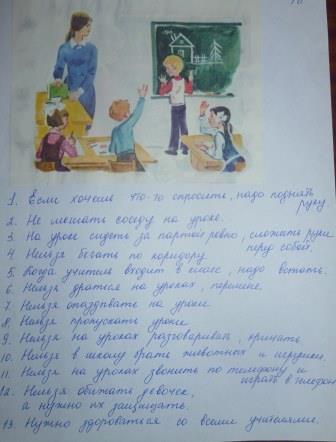 1. Если хочешь что-то спросить, надо поднять
руку.
2. Не мешать соседу на уроке.
3. На уроке сидеть за партой ровно, сложить руки
перед собой.
4 Нельзя бегать по коридору
5. Когда учитель входит в класс, надо встать.
6. Нельзя драться на уроках, перемене.
7. Нельзя опаздывать на уроки
8. Нельзя пропускать уроки
9. Нельзя на уроках разговаривать, кричать
10. Нельзя в школу брать животных и игрушки.
11. Нельзя на уроках звонить по телефону и
играть в телефон
12. Нельзя обижать девочек,
а нужно их защищать.
13. Нужно здороваться со всеми учителями.